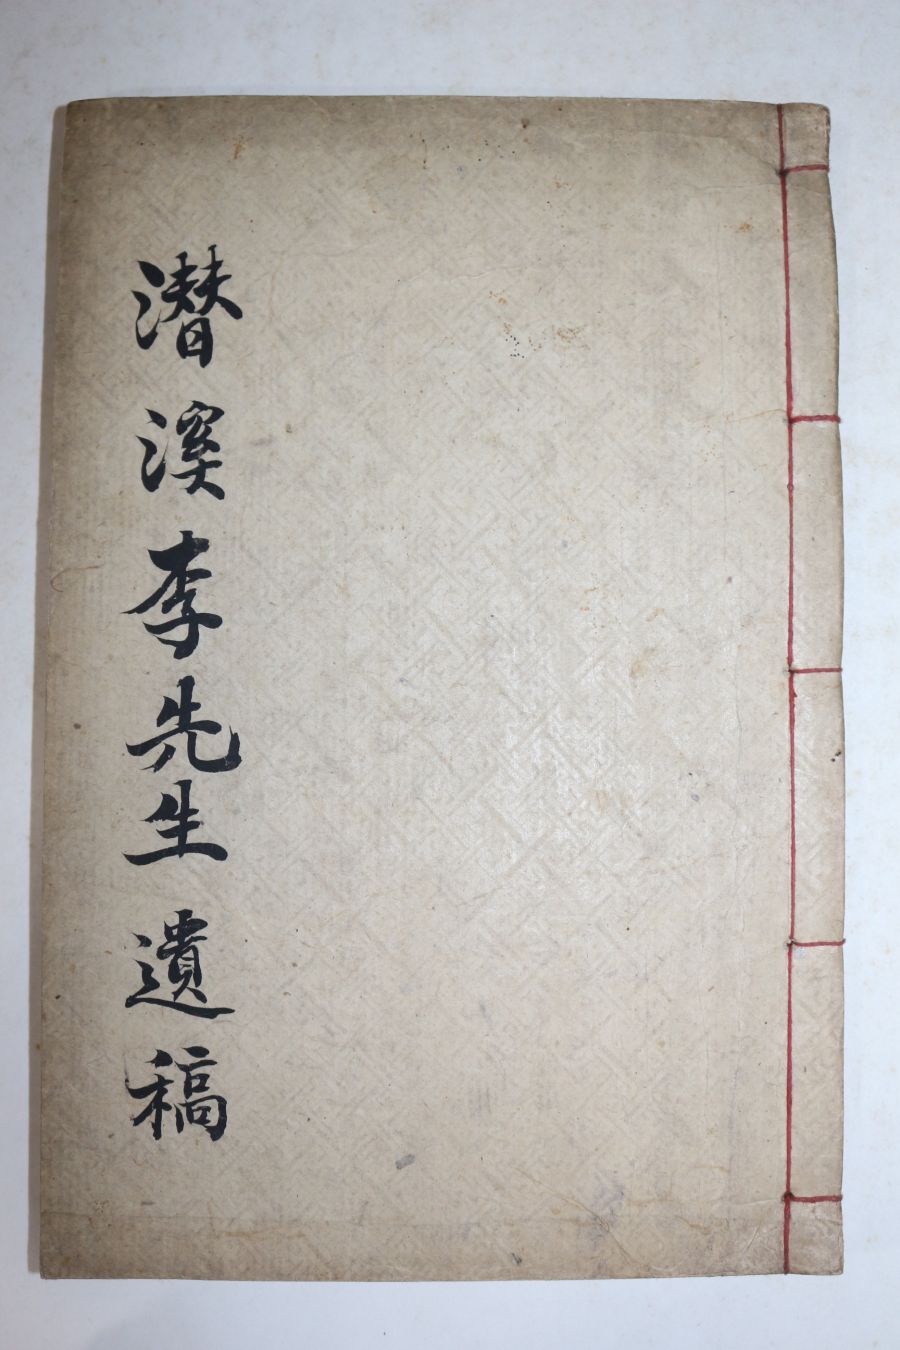 潛溪李先生遺稿